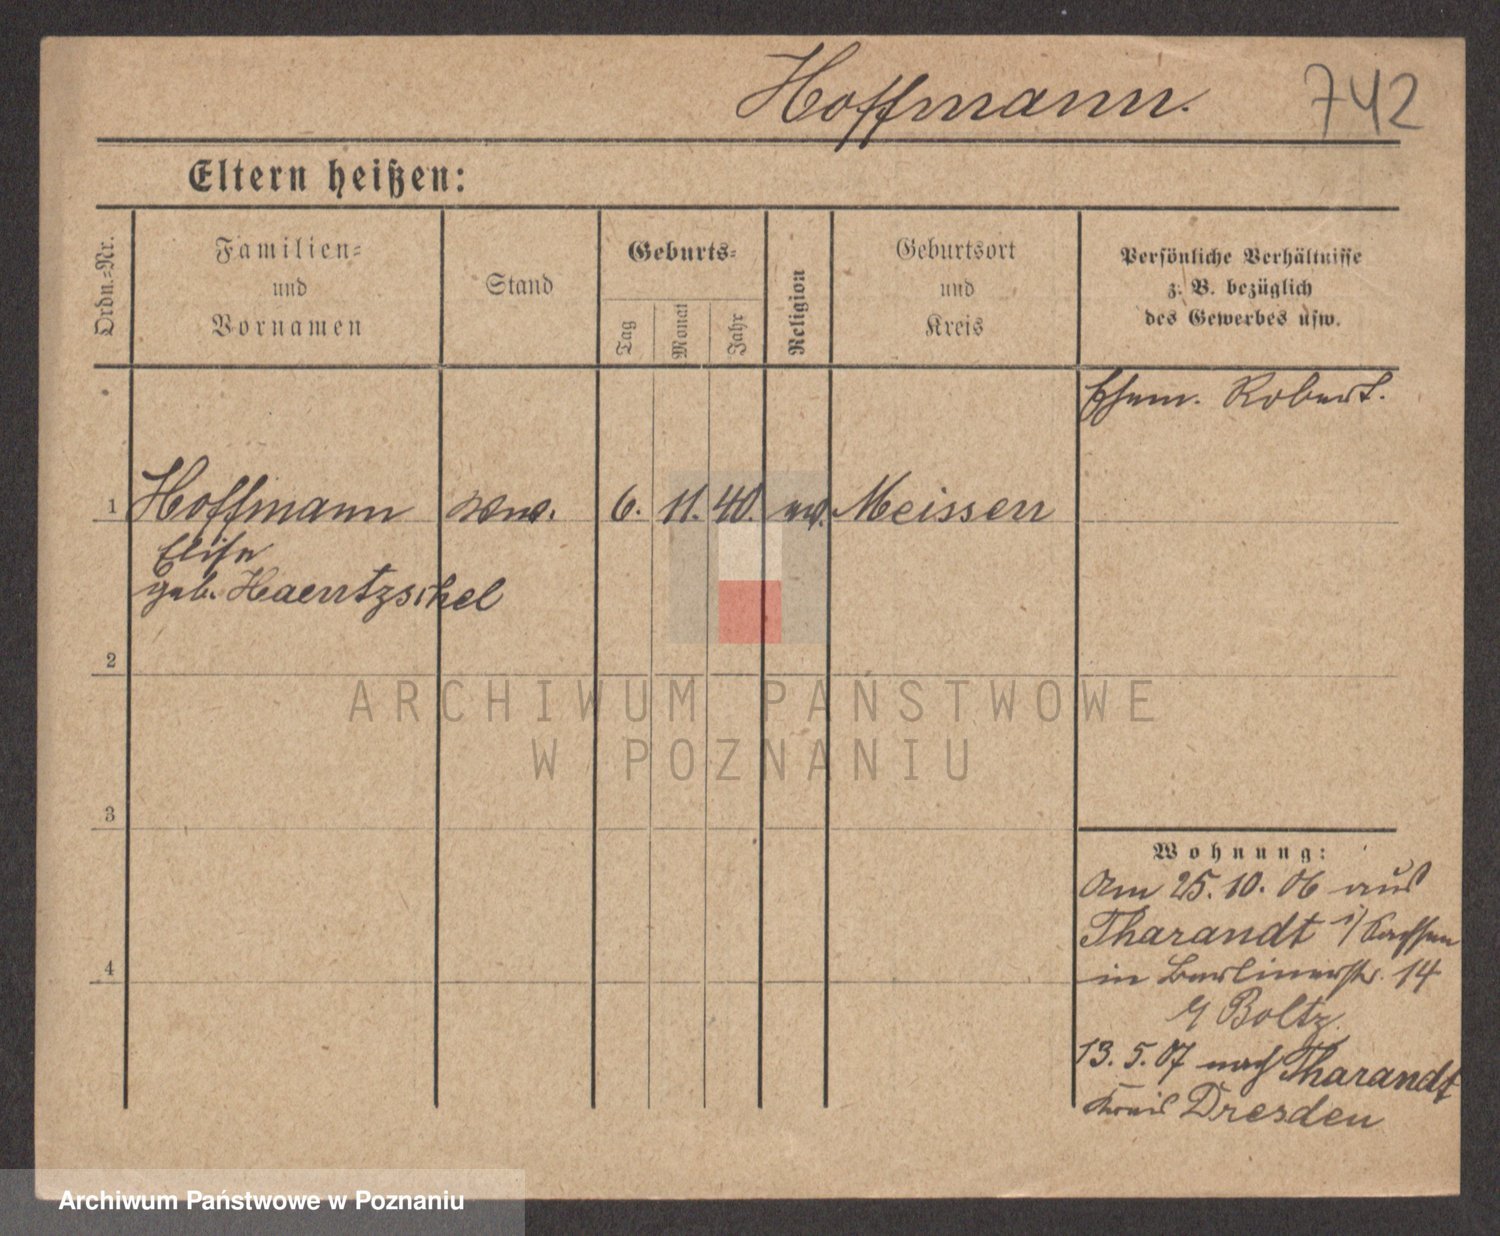 Hoffmann.
742
Eltern heißen:
Ordn.-Nr.
Familien-
und
Vornamen
Stand
Geburts-
Tag
Monat
Jahr
Religion
Geburtsort
und
Kreis
Persönliche Verhältnisse
z. B. bezüglich
des Gewerbes usw.
Ehem. Robert.
1 Hoffmann Ww. 6. 11. 40. ev. Meissen
Elise
geb. Haentzschel
2
3
4
Wohnung:
Am 25.10.06 aus
Tharandt i/Sachsen
in Berlinerstr. 14
Boltz.
13.5.07 nach Tharandt
Kreis Dresden
ARCHIWUM PAŃSTWOWE
W POZNANIU
Archiwum Państwowe w Poznaniu